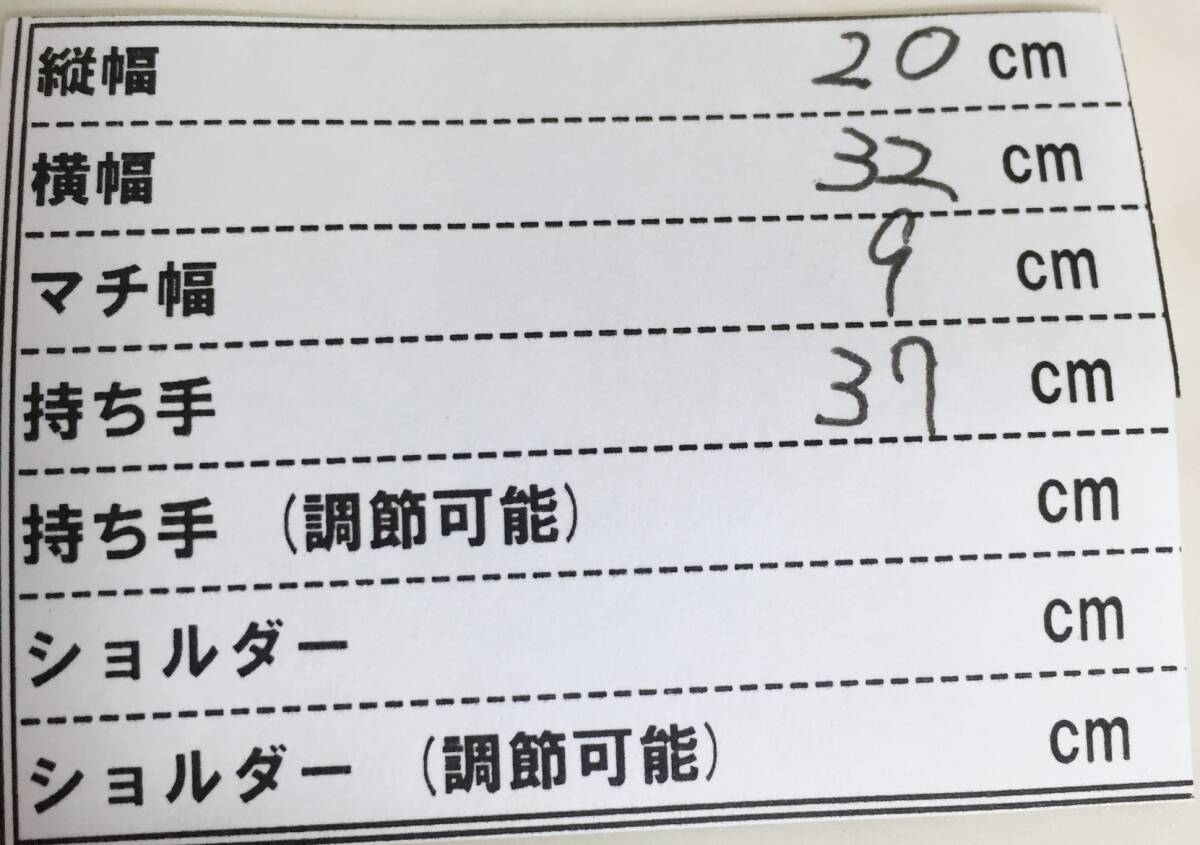 縦幅 20 cm
横幅 32 cm
マチ幅 9 cm
持ち手 37 cm
持ち手 (調節可能) cm
ショルダー cm
ショルダー (調節可能) cm